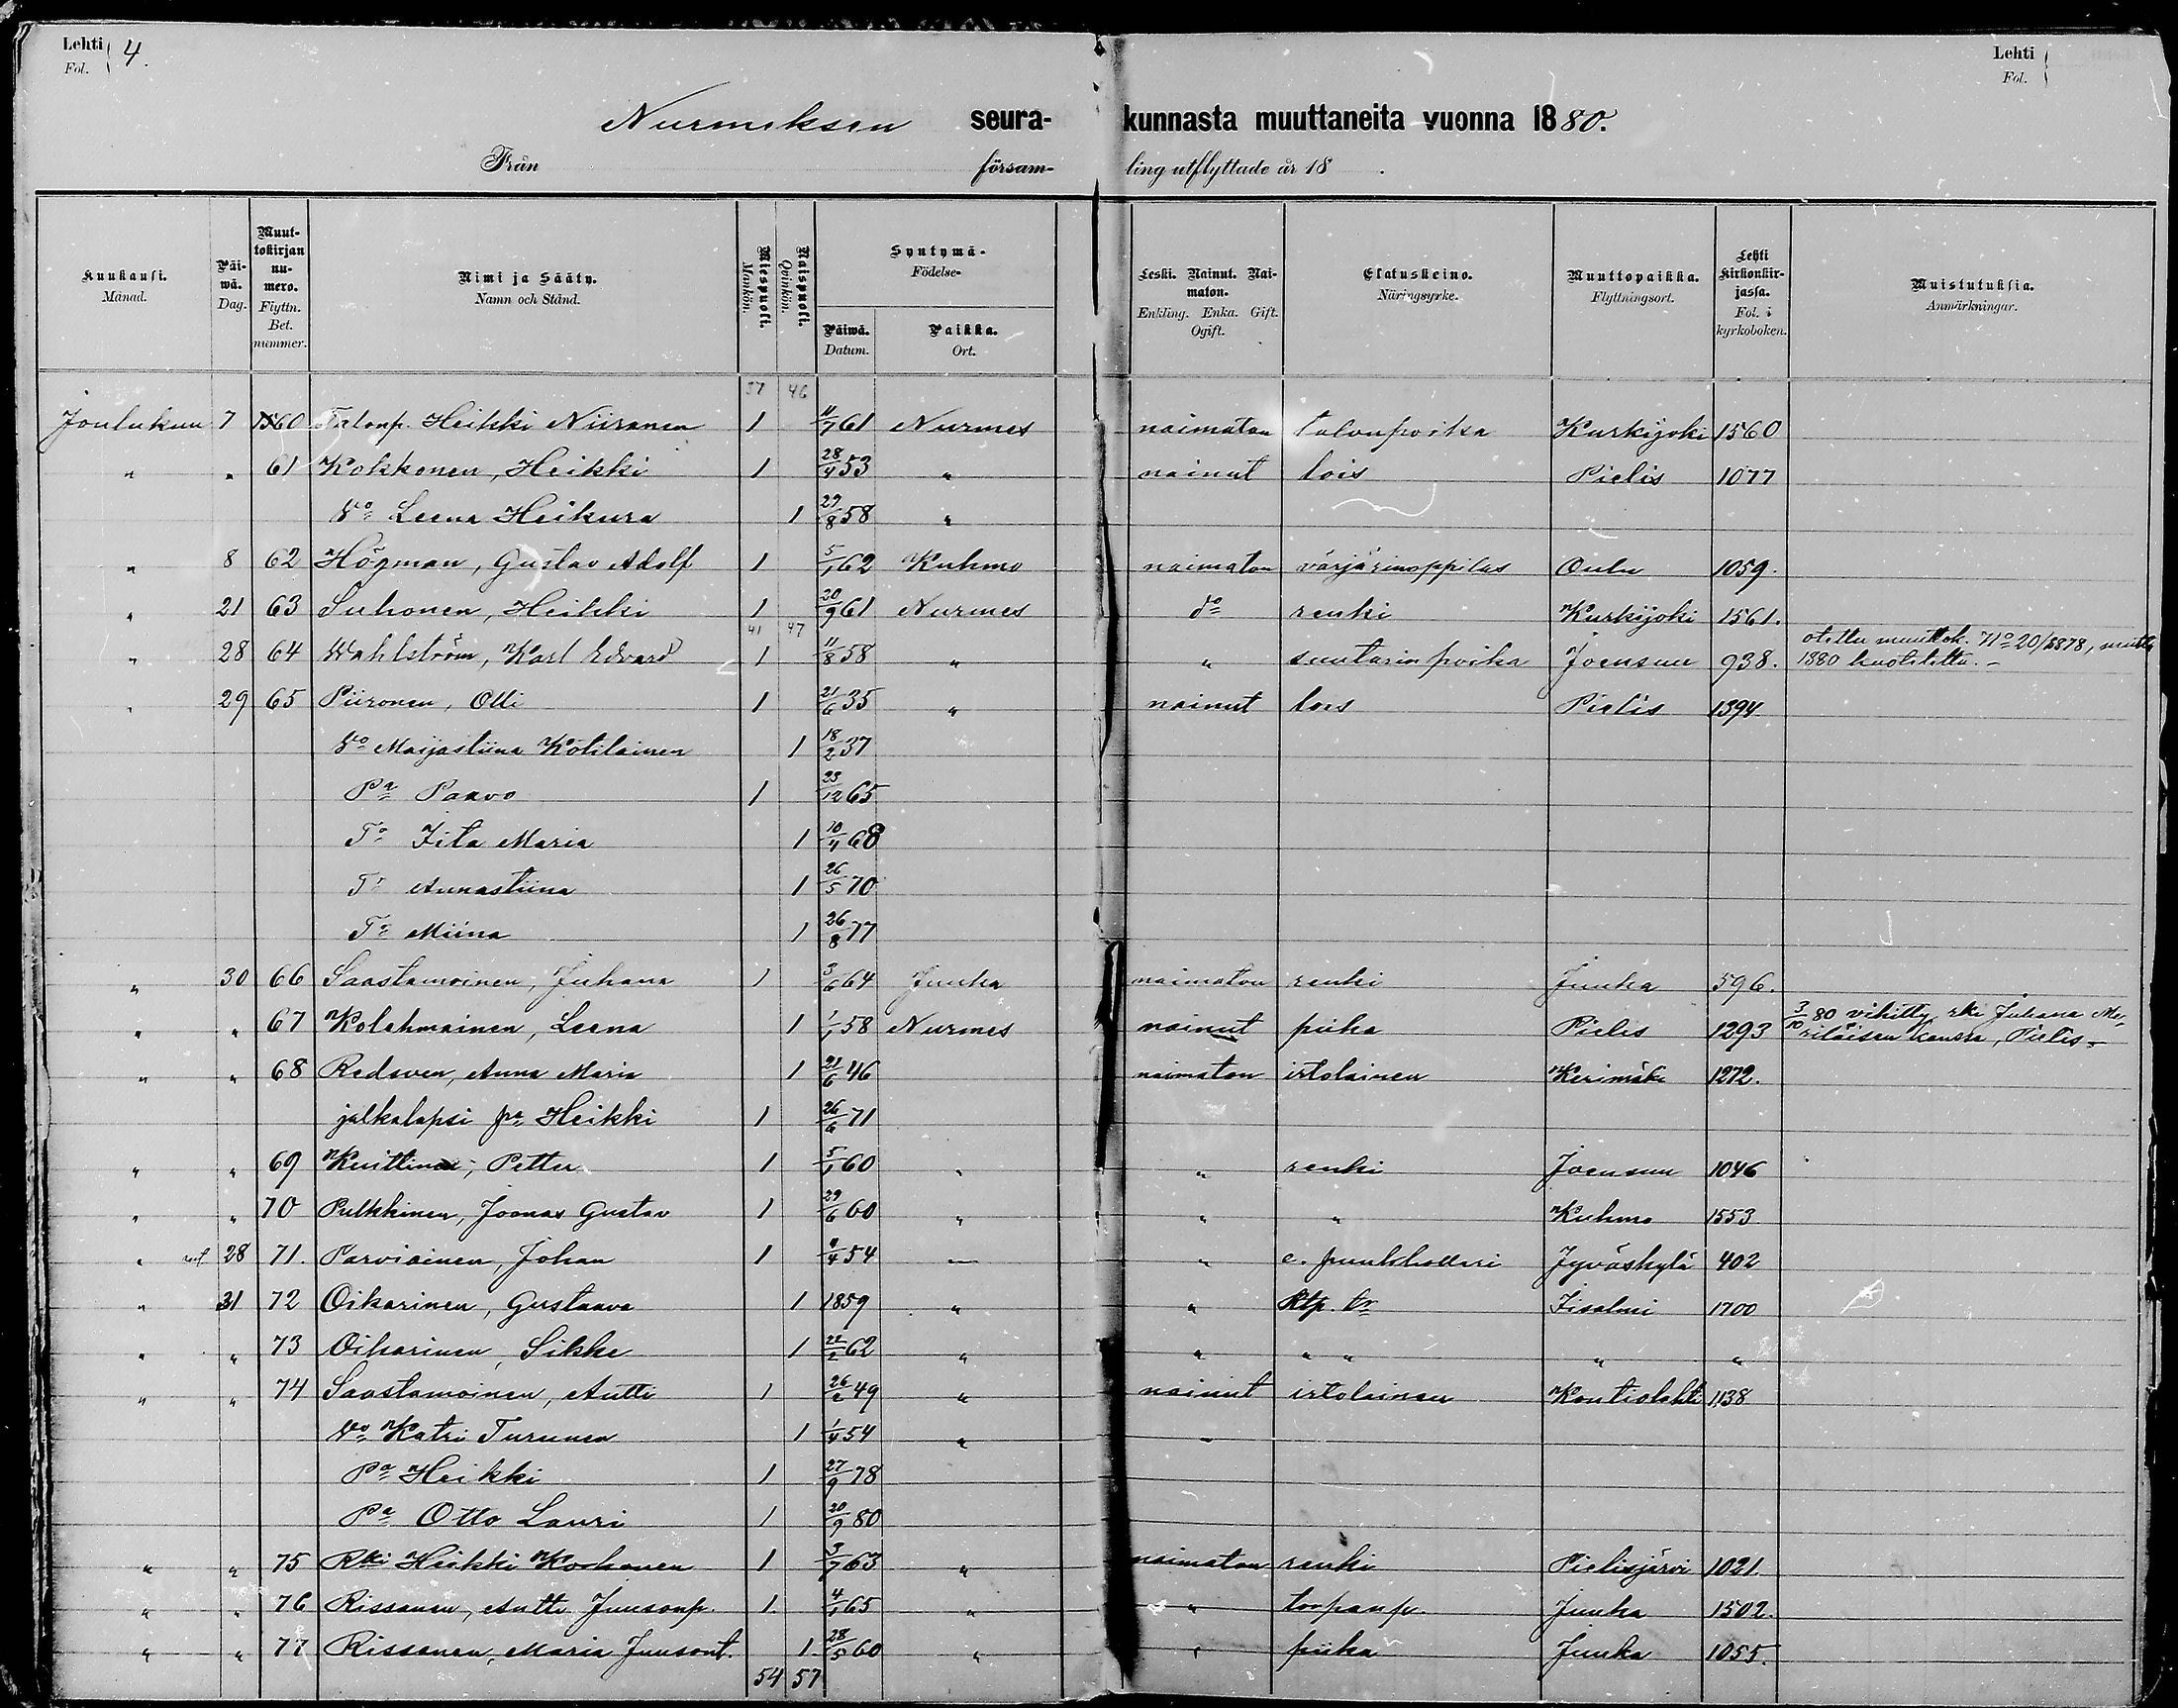 Lehti 4. Lehti
Fol. Fol.
Nurmeksen seura- kunnasta muuttaneita vuonna 1880.
Från försam- ling utflyttade år 18 .
Kuukausi. Månad.
Päiwä. Dag.
Muuttokirjan numero. Flyttn. Bet. nummer.
Nimi ja Sääty. Namn och Stånd.
Miespuoli. Mankön.
Naispuoli. Qvinkön.
Syntymä- Födelse-
Päiwä. Datum.
Paikka. Ort.
Leski. Nainut. Naimaton. Enkling. Enka. Gift. Ogift.
Elatuskeino. Näringsyrke.
Muuttopaikka. Flyttningsort.
Lehti kirkonkirjassa. Fol. i kyrkoboken.
Muistutuksia. Anmärkningar.
37 46
Joulukun 7 1560 Talonp. Heikki Niiranen 1 11/7 61 Nurmes naimaton talonpoika Kurkijoki 1560
" " 61 Kokkonen, Heikki 1 28/4 53 " nainut lois Pielis 1077
Vo Leena Heikura 1 29/8 58 "
" 8 62 Högman, Gustav Adolf 1 5/1 62 Kuhmo naimaton värjärinoppilas Oulu 1059.
" 21 63 Suhonen, Heikki 1 20/9 61 Nurmes do renki Kurkijoki 1561.
41 47
" 28 64 Wahlström, Karl Edvard 1 11/8 58 " " suutarin poika Joensuu 938. otettu muuttok. 20/ 1878, mutta
1880
" 29 65 Piironen, Olli 1 21/6 35 " nainut lois Pielis 1394
Vo Maijastiina Kotilainen 1 18/2 37
Pa Paavo 1 23/12 65
Tr Iita Maria 1 10/4 68
Tr Annastiina 1 26/5 70
Tr Miina 1 26/8 77
" 30 66 Saastamoinen, Juhana 1 3/6 64 Juuka naimaton renki Juuka 596.
" " 67 Kolehmainen, Leena 1 1/1 58 Nurmes nainut piika Pielis 1293 3/10 80 vihitty rki Juhana Me-
riläisen kanssa, Pielis.
" " 68 Redsven, Anna Maria 1 21/6 46 naimaton irtolainen Kerimäki 1272.
jalkalapsi pa Heikki 1 26/6 71
" " 69 Kuittinen, Petter 1 5/1 60 " " renki Joensuu 1046
" " 70 Pulkkinen, Joonas Gustav 1 29/6 60 " " " Kuhmo 1553
" 28 71. Parviainen, Johan 1 4/4 54 — " e. punkhollari Jyväskylä 402
" 31 72 Oikarinen, Gustaava 1 1859 " " Rtp. tr Iisalmi 1700
" " 73 Oikarinen, Sikke 1 22/2 62 " " " " " "
" " 74 Saastamoinen, Antti 1 26/2 49 " nainut irtolainen Kontiolahti 1138
Vo Katri Turunen 1 1/4 54 " "
Pa Heikki 1 27/9 78
Pa Otto Lauri 1 20/9 80
" " 75 Rki Heikki Korhonen 1 3/7 63 " naimaton renki Pielisjärvi 1021.
" " 76 Rissanen, Antti Juusonp. 1. 4/1 65 " " torpanp. Juuka 1502.
" " 77 Rissanen, Maria Juusont. 1. 28/5 60 " " piika Juuka 1055.
54 57